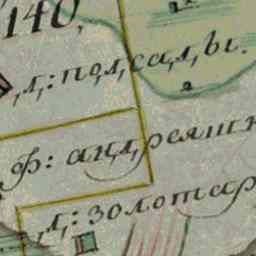 140,
д: полсалы.
2
ф: андреяшк
д: золотар